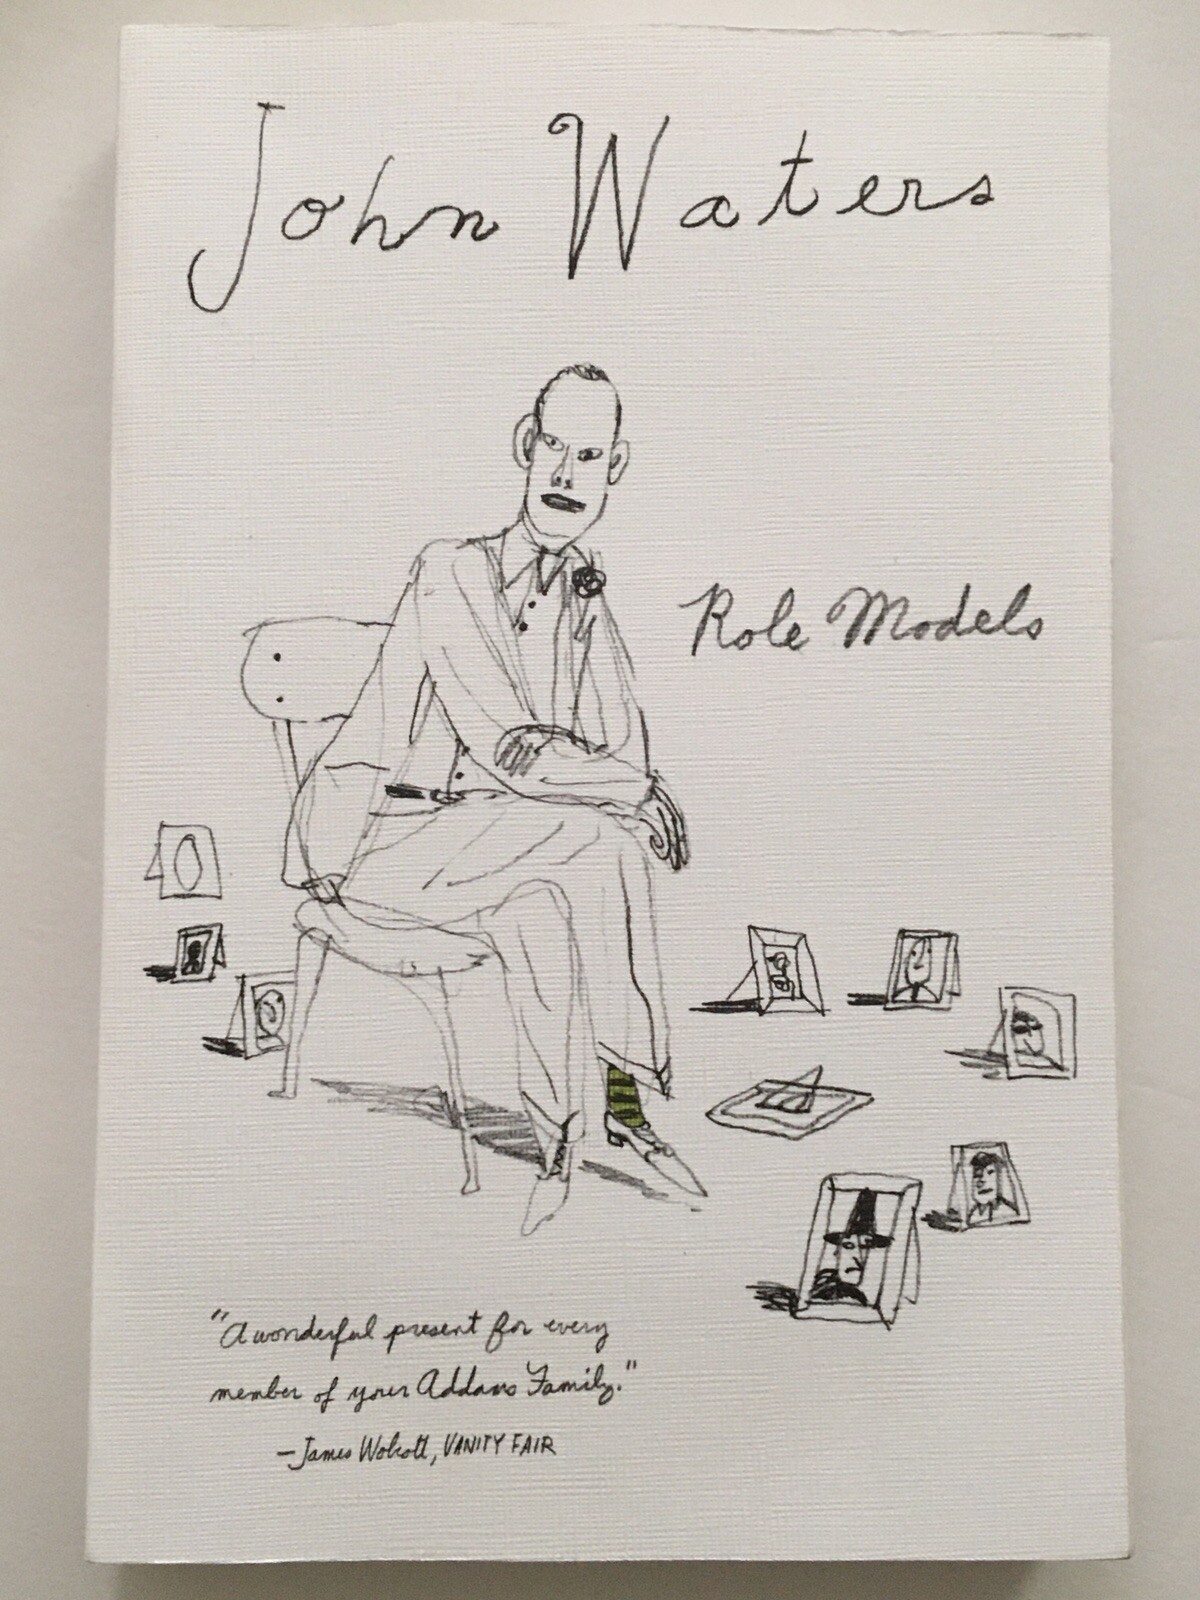 John Waters
Role Models
"A wonderful present for every
member of your Addams Family."
—James Wolcott, VANITY FAIR